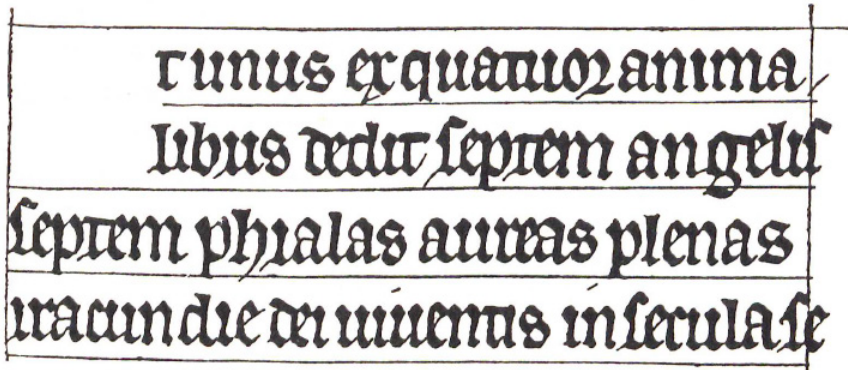 t unus ex quatuor anima
libus dedit septem angelis
septem phialas aureas plenas
iracundie dei uiuentis in secula se